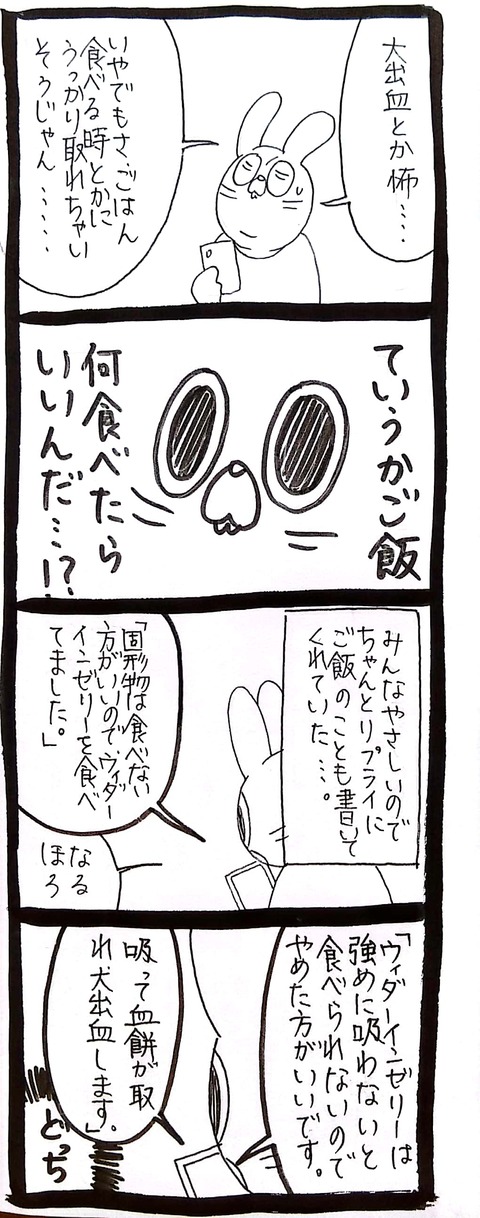 大出血とか怖……
いやでもさ、ごはん
食べる時とかに
うっかり取れちゃい
そうじゃん……
ていうかご飯
何食べたら
いいんだ…!?
みんなやさしいので
ちゃんとリプライに
ご飯のことも書いて
くれていた…。
「固形物は食べない
方がいいので、ウィダー
インゼリーを食べ
てました。」
なる
ほろ
「ウィダーインゼリーは
強めに吸わないと
食べられないので
やめた方がいいです。
吸って血餅が取
れ大出血します。」
どっち